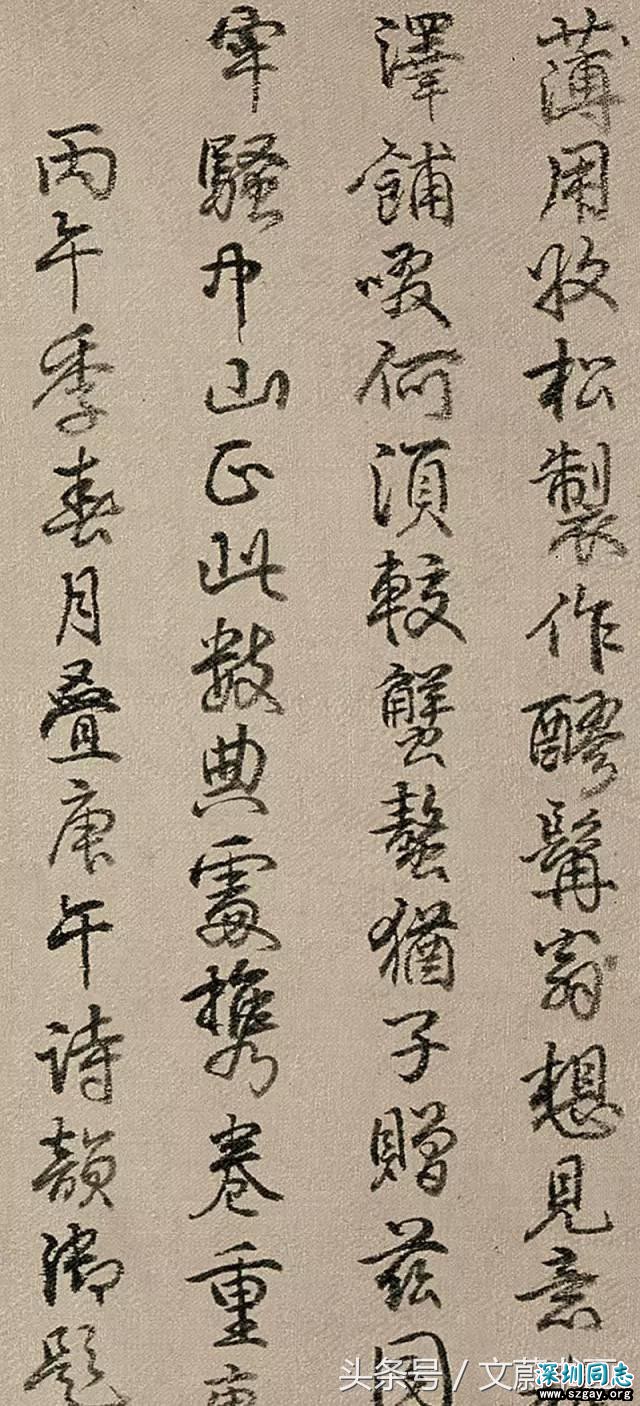 薄用收松製作醪髯翁想見意
澤餔啜何須較蟹螯猶子贈茲
牢騷中山正此數典處攜卷重
丙午季春月疊庚午詩韻御題
头条号 / 文蔚
深圳同志
www.szgay.org